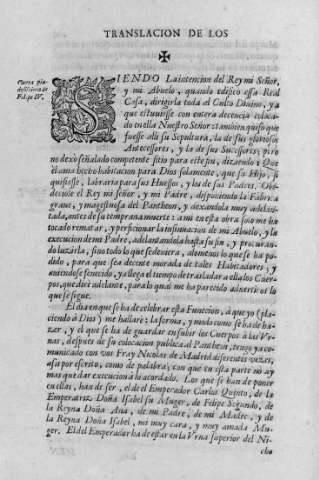 TRANSLACION DE LOS
✠
Carta pia-
dosissima de
Felipe IV.
SIENDO La intencion del Rey mi Señor,
y mi Abuelo, quando edificò essa Real
Casa, dirigirla toda al Culto Divino, y a
que estuuiesse con entera decencia coloca-
do en ella Nuestro Señor: tambien quiso que
fuesse alli su Sepultura, la de sus gloriosos
Antecessores, y la de sus Successores; pero
no dexò señalado competente sitio para este fin, diziendo: Que
èl auia hecho habitacion para Dios solamente, que su Hijo, si
quisiesse, labraria para sus Huessos, y los de sus Padres. Obe-
deciole el Rey mi señor, y mi Padre, disponiendo la Fabrica
graue, y magestuosa del Pantheon, y dexandola muy adelan-
tada, antes de su temprana muerte: a mi en esta obra solo me ha
tocado rematar, y perficionar la insinuacion de mi Abuelo, y la
execucion de mi Padre, adelantandola hasta su fin, y procuran-
do luzirla, sino todo lo que se deuiera, alomenos lo que se ha po-
dido, para que sea decente morada de tales Habitadores; y
auiendose fenecido, ya llega el tiempo de trasladar a ella los Cuer-
pos, que dirè adelante, para lo qual me ha parecido advertiros lo
que se sigue.
El dia en que se ha de celebrar esta Funccion, a que yo (pla-
ciendo à Dios) me hallarè; la forma, y modo como se ha de ha-
zer, y el que se ha de guardar en subir los Cuerpos a las Vr-
nas, despues de su colocacion publica al Pantheon, tengo ya co-
municado con vos Fray Nicolas de Madrid diferentes vezes,
assi por escrito, como de palabra; con que en esta parte no ay
mas que dar execucion a lo acordado. Los que se han de poner
en ellas, han de ser, el de el Emperador Carlos Quinto, de la
Emperatriz Doña Isabel su Muger, de Felipe Segundo, de
la Reyna Doña Ana, de mi Padre, de mi Madre, y de
la Reyna Doña Isabel, mi muy cara, y muy amada Mu-
ger. El del Emperador ha de estar en la Vrna superior del Ni-
cho